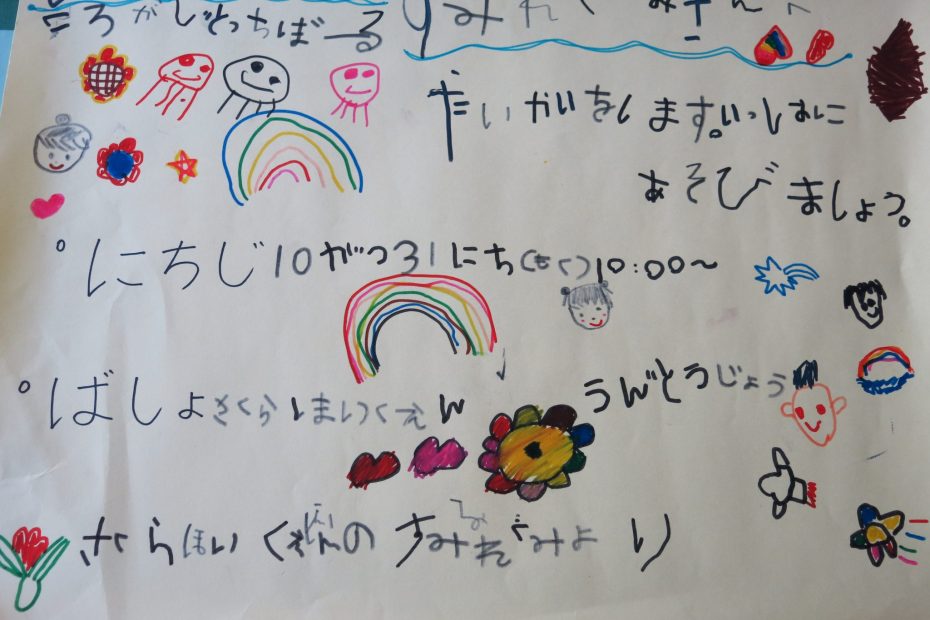 ころがしどっちぼーる
たいかいをします。いっしょに
あそびましょう。
°にちじ10がつ31にち(もく)10:00〜
°ばしょさくらほいくえん うんどうじょう
さくらほいくえんの すみれぐみより